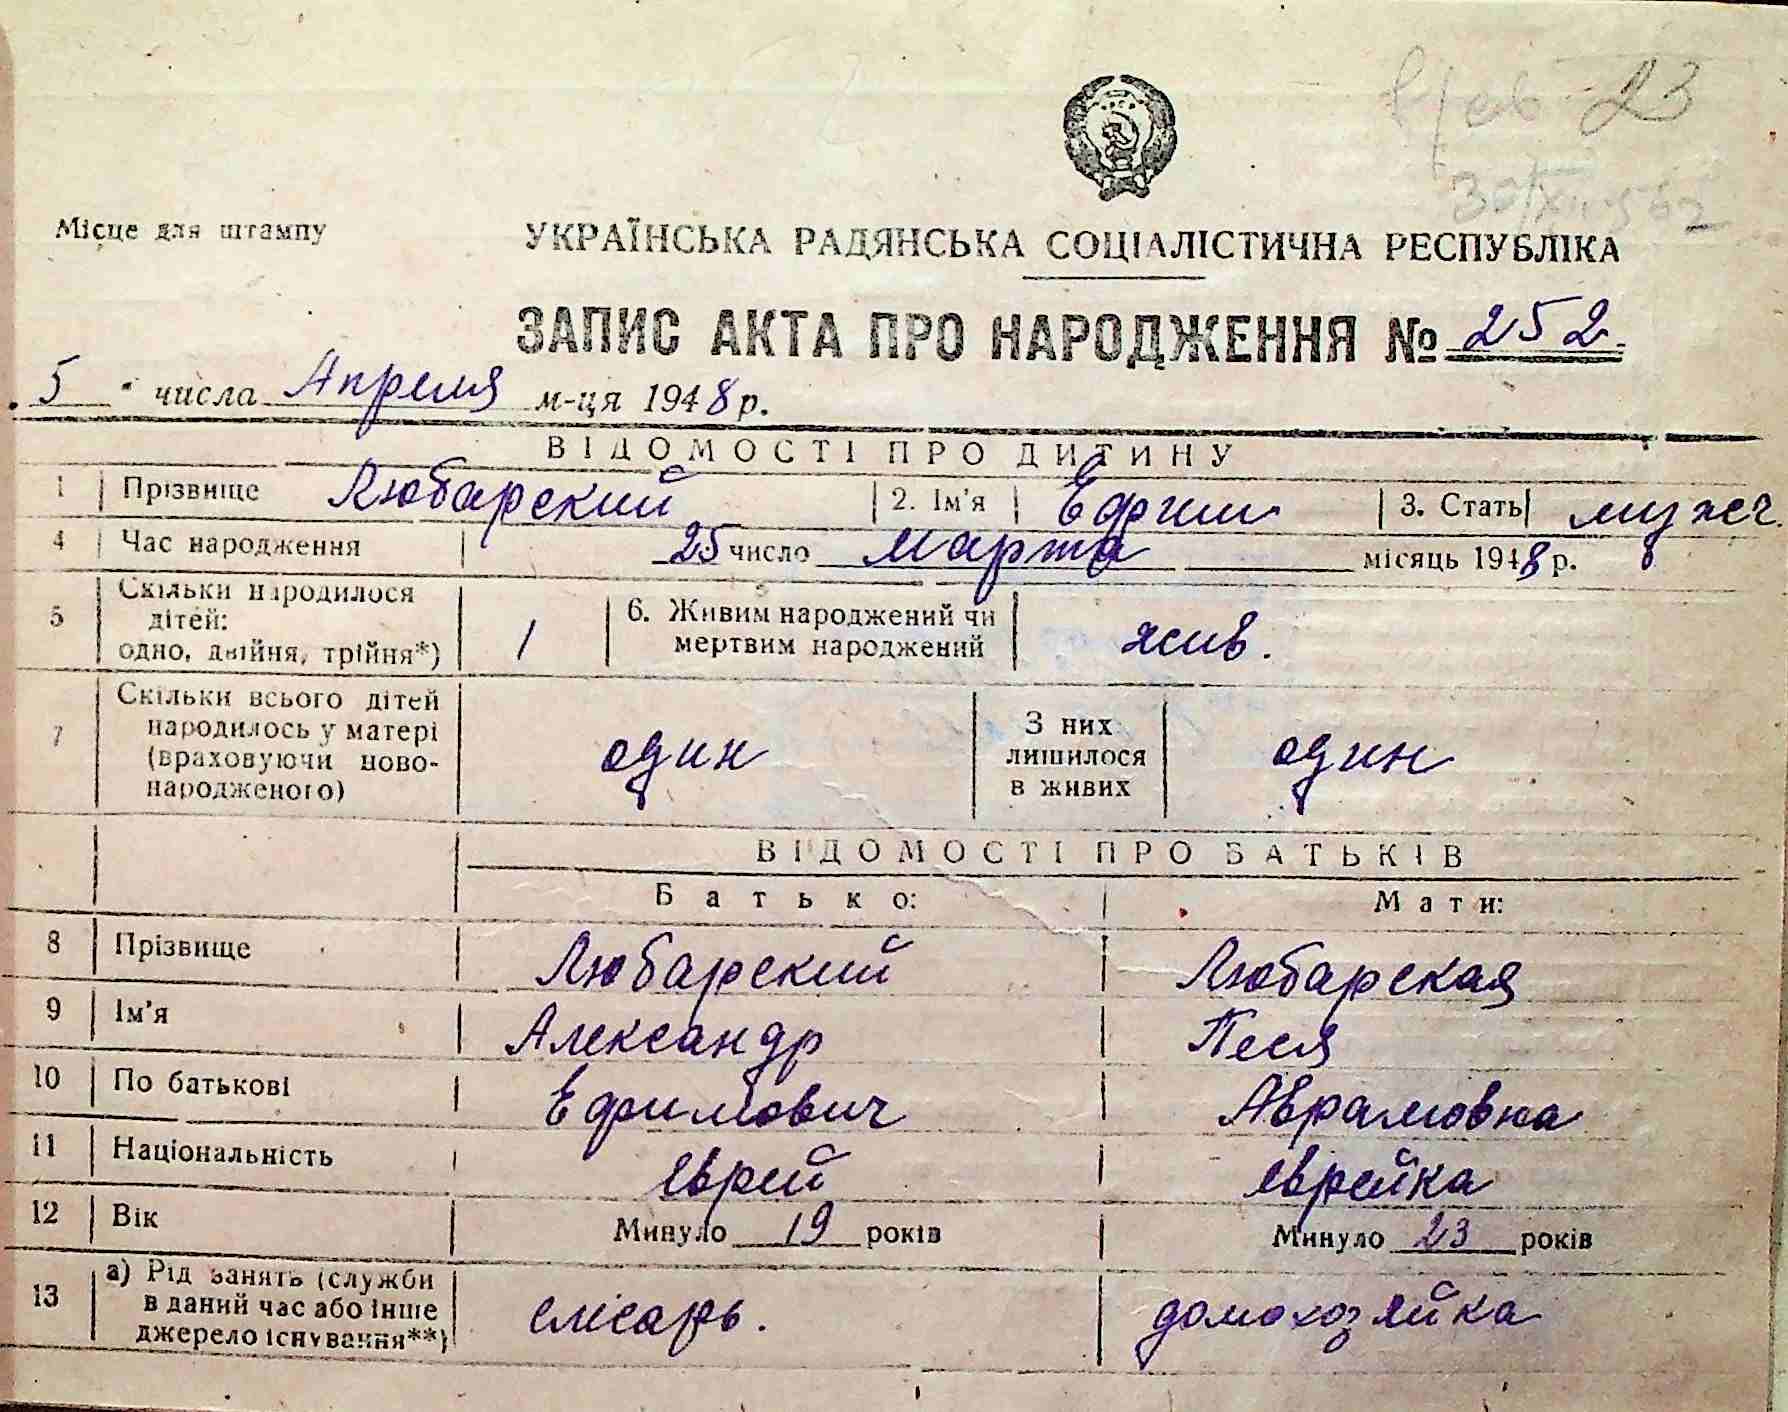 23
Місце для штампу
УКРАЇНСЬКА РАДЯНСЬКА СОЦІАЛІСТИЧНА РЕСПУБЛІКА
ЗАПИС АКТА ПРО НАРОДЖЕННЯ № 252.
5 числа Апреля м-ця 1948 р.
ВІДОМОСТІ ПРО ДИТИНУ
1 Прізвище Любарский 2. Ім'я Ефим 3. Стать мужч.
4 Час народження 25 число Марта місяць 1948 р.
5 Скільки народилося
дітей:
одно, двійня, трійня*) 1
6. Живим народжений чи
мертвим народжений жив.
7 Скільки всього дітей
народилось у матері
(враховуючи ново-
народженого) один
З них
лишилося
в живих один
ВІДОМОСТІ ПРО БАТЬКІВ
Батько: Мати:
8 Прізвище Любарский Любарская
9 Ім'я Александр Песя
10 По батькові Ефимович Аврамовна
11 Національність еврей еврейка
12 Вік Минуло 19 років Минуло 23 років
13 а) Рід занять (служби
в даний час або інше
джерело існування**) слісарь. домохозяйка